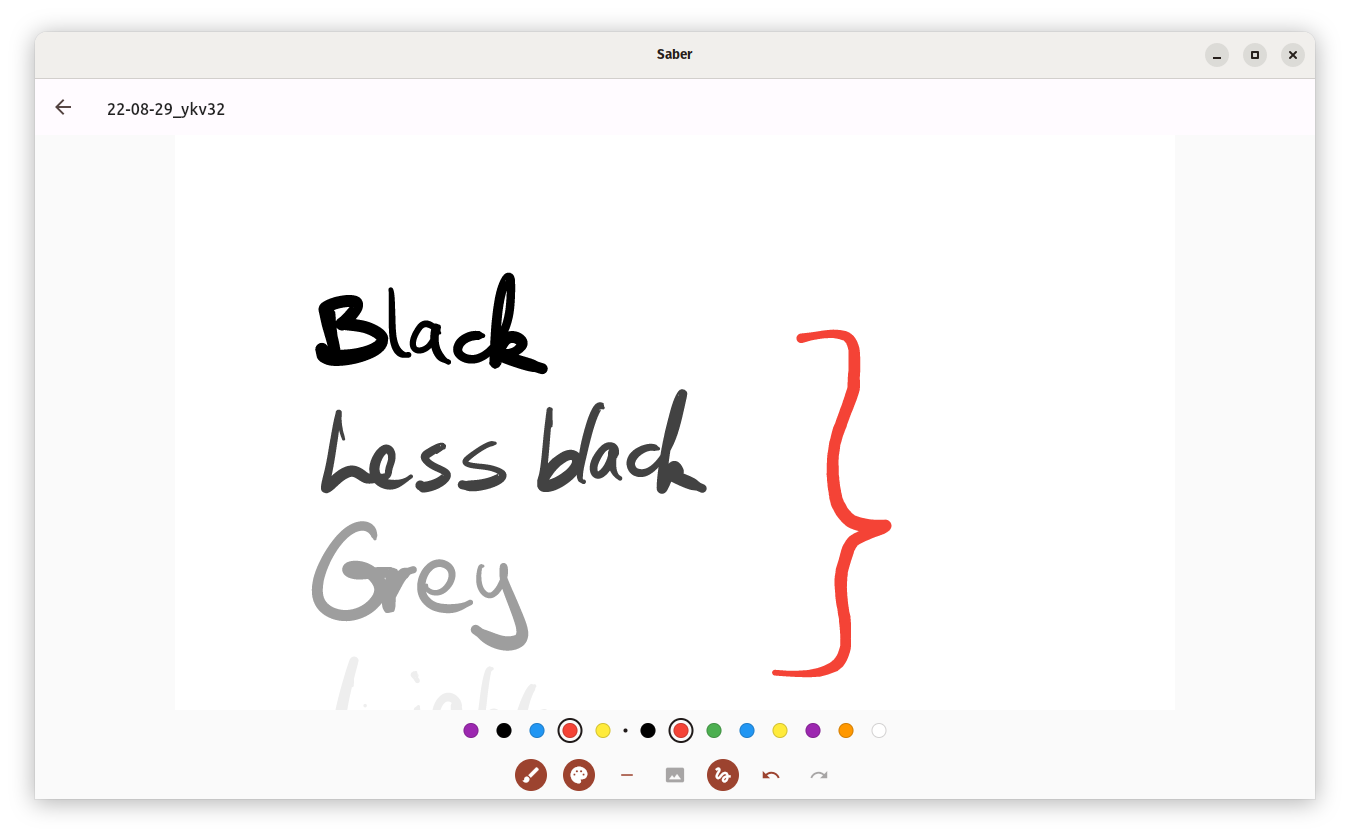 Saber
22-08-29_ykv32
Black
Less black
Grey